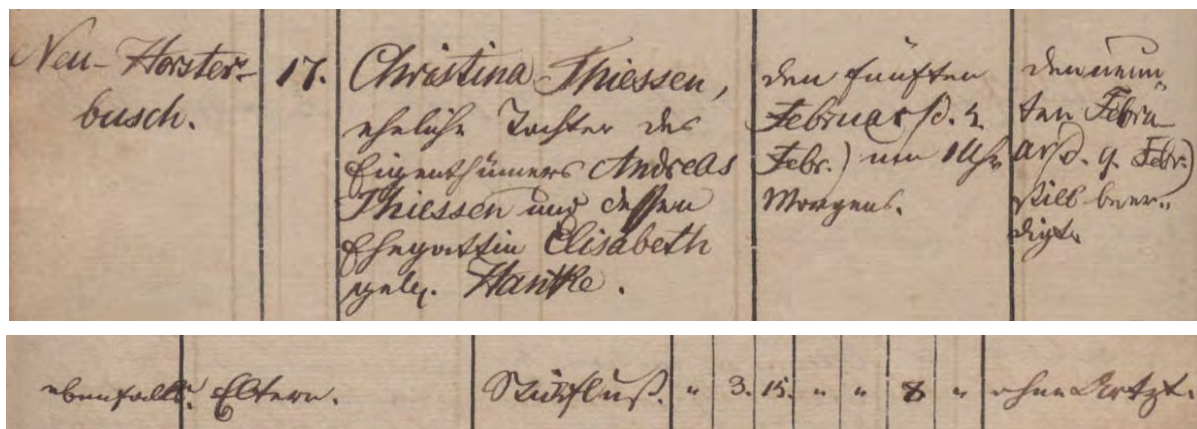 Neu-Horster-
busch.
17.
Christina Thiessen,
eheliche Tochter des
Eigenthümers Andreas
Thiessen und dessen
Ehegattin Elisabeth
geb. Hantke.
den fünften
Februar (d. 5.
Febr.) um 1 Uhr
Morgens.
den neun
ten Febru
ar (d. 9. Febr.)
still beer-
digt.
ebenfalls. Eltern. Stickfluß. " 3. 15. " " 8 " ohne Artzt.